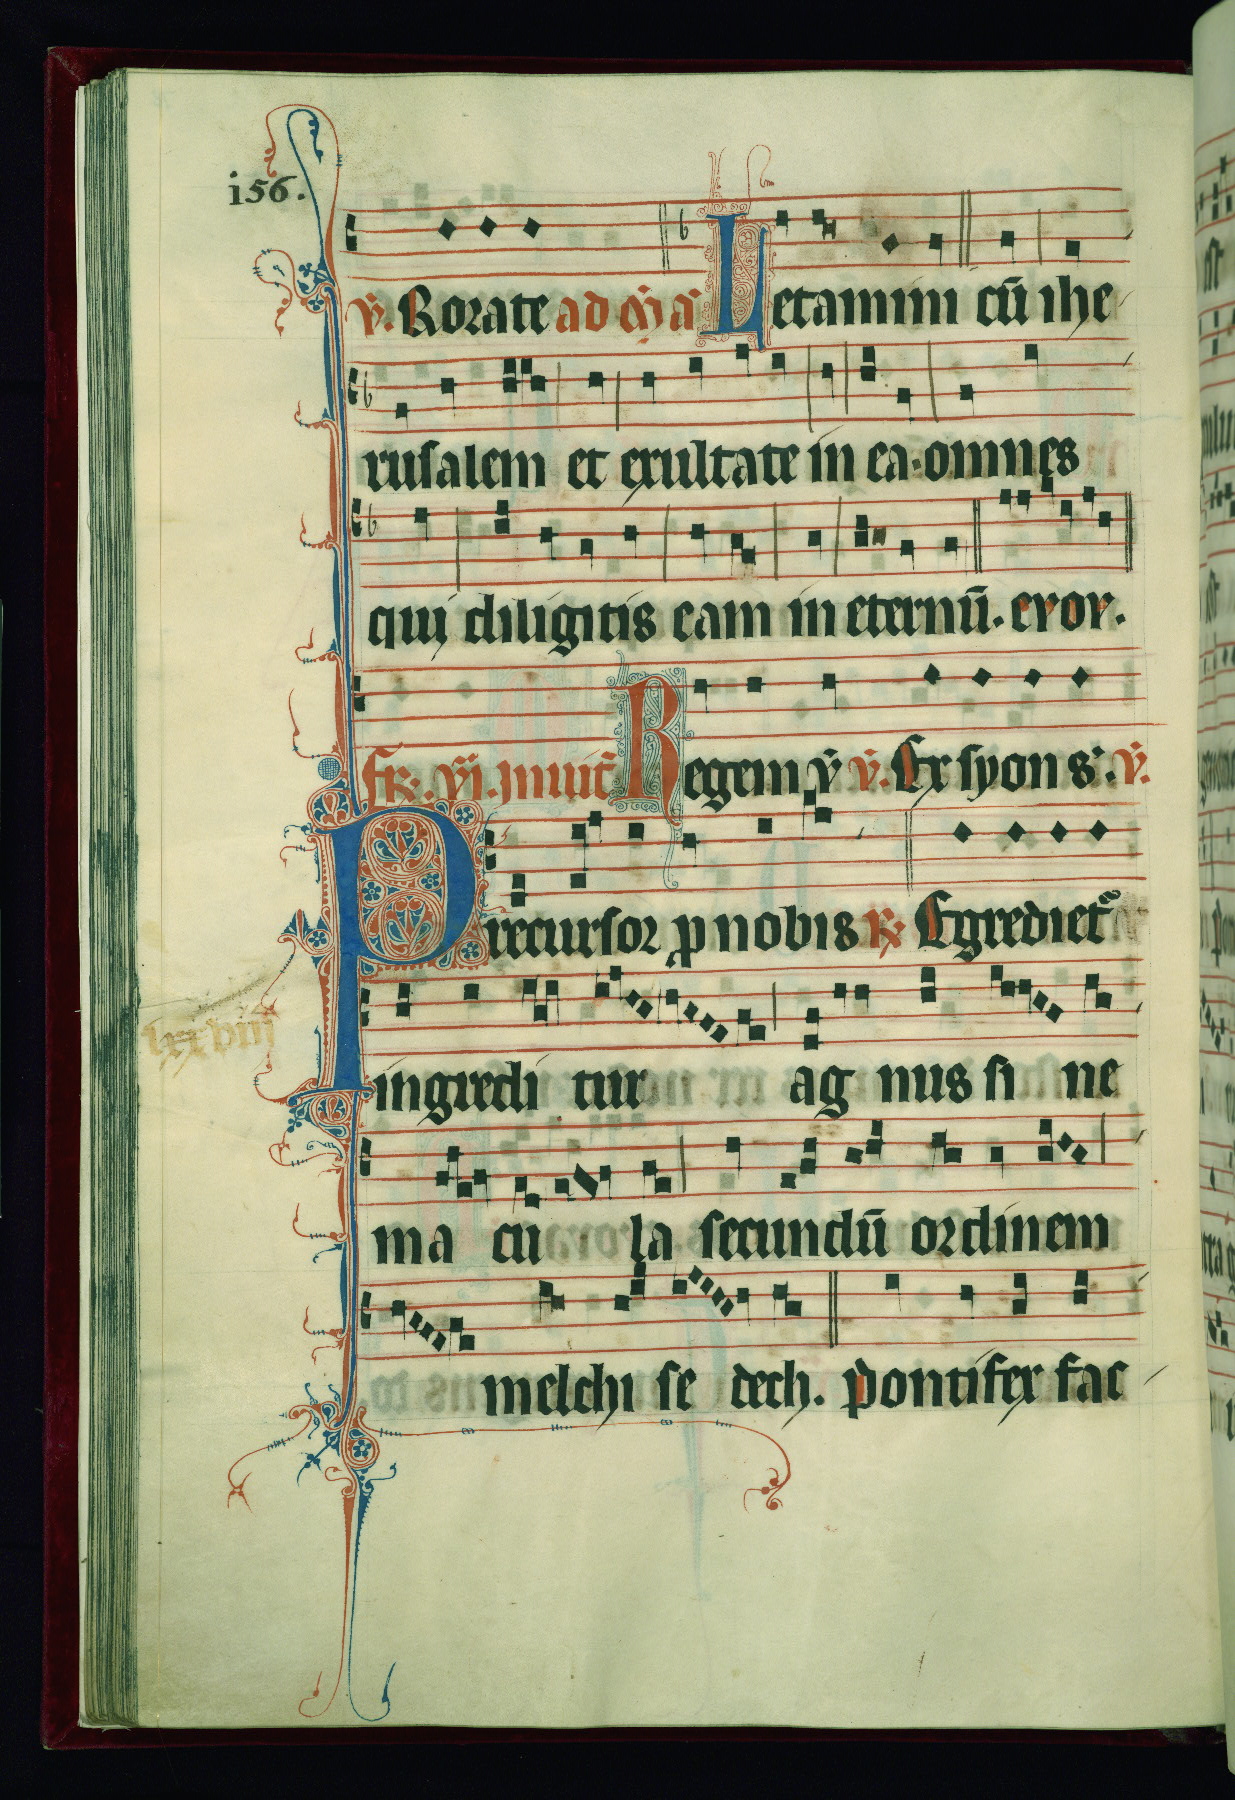 i56.
v̄. Rorate ad m̄ a͂ Letamini cū ihe
rusalem et exultate in ea. omnes
qui diligitis eam in eternū. evov.
fr̄. vi. invit̄ Regem v̄ v̄. Ex syon s̄. v̄.
Precursor p nobis R̷ Egrediet᷑
lxxviii
ingredi tur ag nus si ne
ma cu la secundū ordinem
melchi se dech. pontifex fac